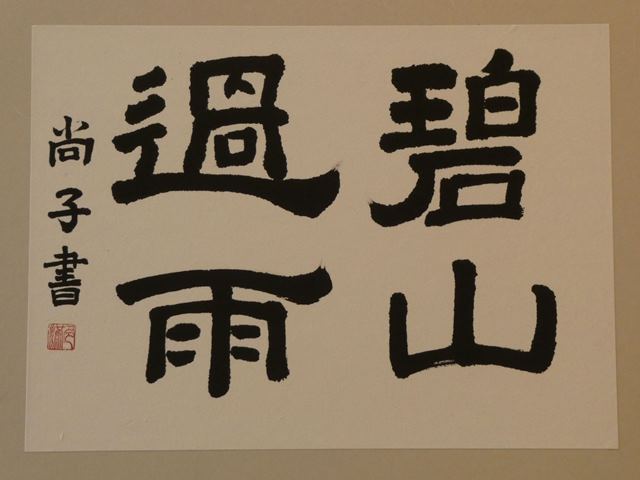 碧山
過雨
尚子書